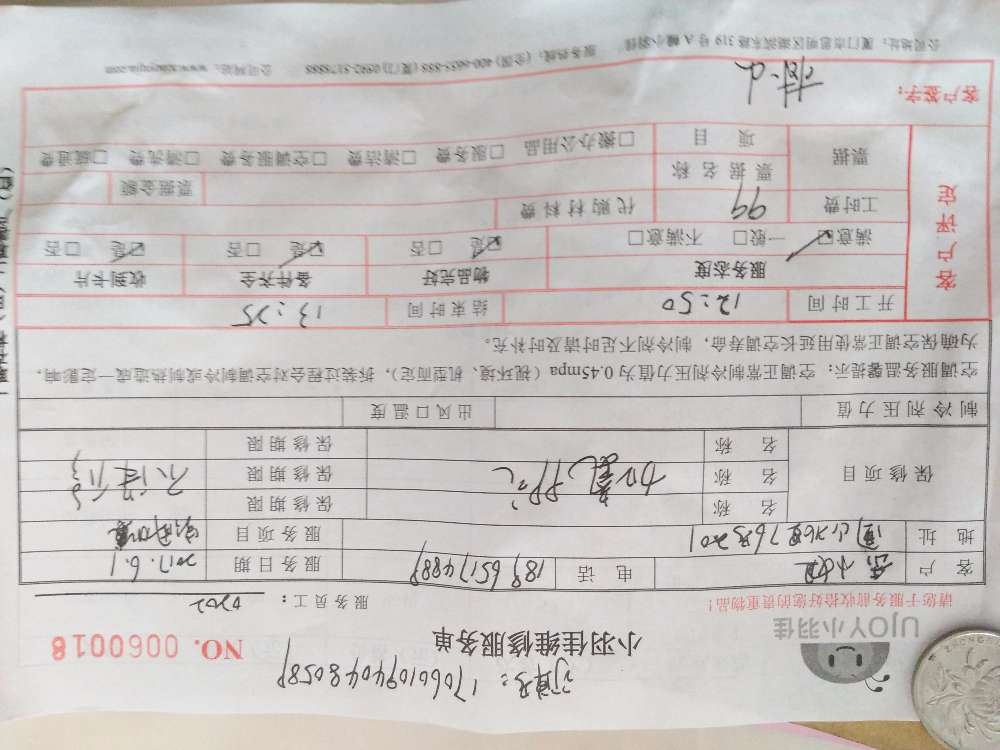 订单号：170601094048058
UJOY小羽佳
小羽佳维修服务单
NO. 0060018
请您于服务前收拾好您的贵重物品！
服务员工：0202
客户 电话 服务日期 2017.6.1
地址 服务项目
保修项目 名称 保修期限
名称 加氟 保修期限 不保修
名称 保修期限
制冷剂压力值 出风口温度
空调服务温馨提示：空调正常制冷剂压力值为0.45mpa（视环境、机型而定），拆装过程会对空调制冷或制热造成一定影响，
为确保空调正常使用延长空调寿命，制冷剂不足时请及时补充。
客户评定
开工时间 12:50 结束时间 13:25
服务态度 物品完好 备件齐全 收到卡片
满意☑ 一般□ 不满意□ ☑是 □否 ☑是 □否 ☑是 □否
工时费 99 代购材料费
票据 票据名称 票据金额
项目 □搬办公用品 □服务费 □清洁费 □空调服务费 □清洗费 □疏通费
客户签字：
公司地址：厦门市思明区湖滨东路319号A幢小羽佳 服务热线：(全国) 400-6655-888 (厦门) 0592-5175888 公司网站：www.xiaoyujia.com